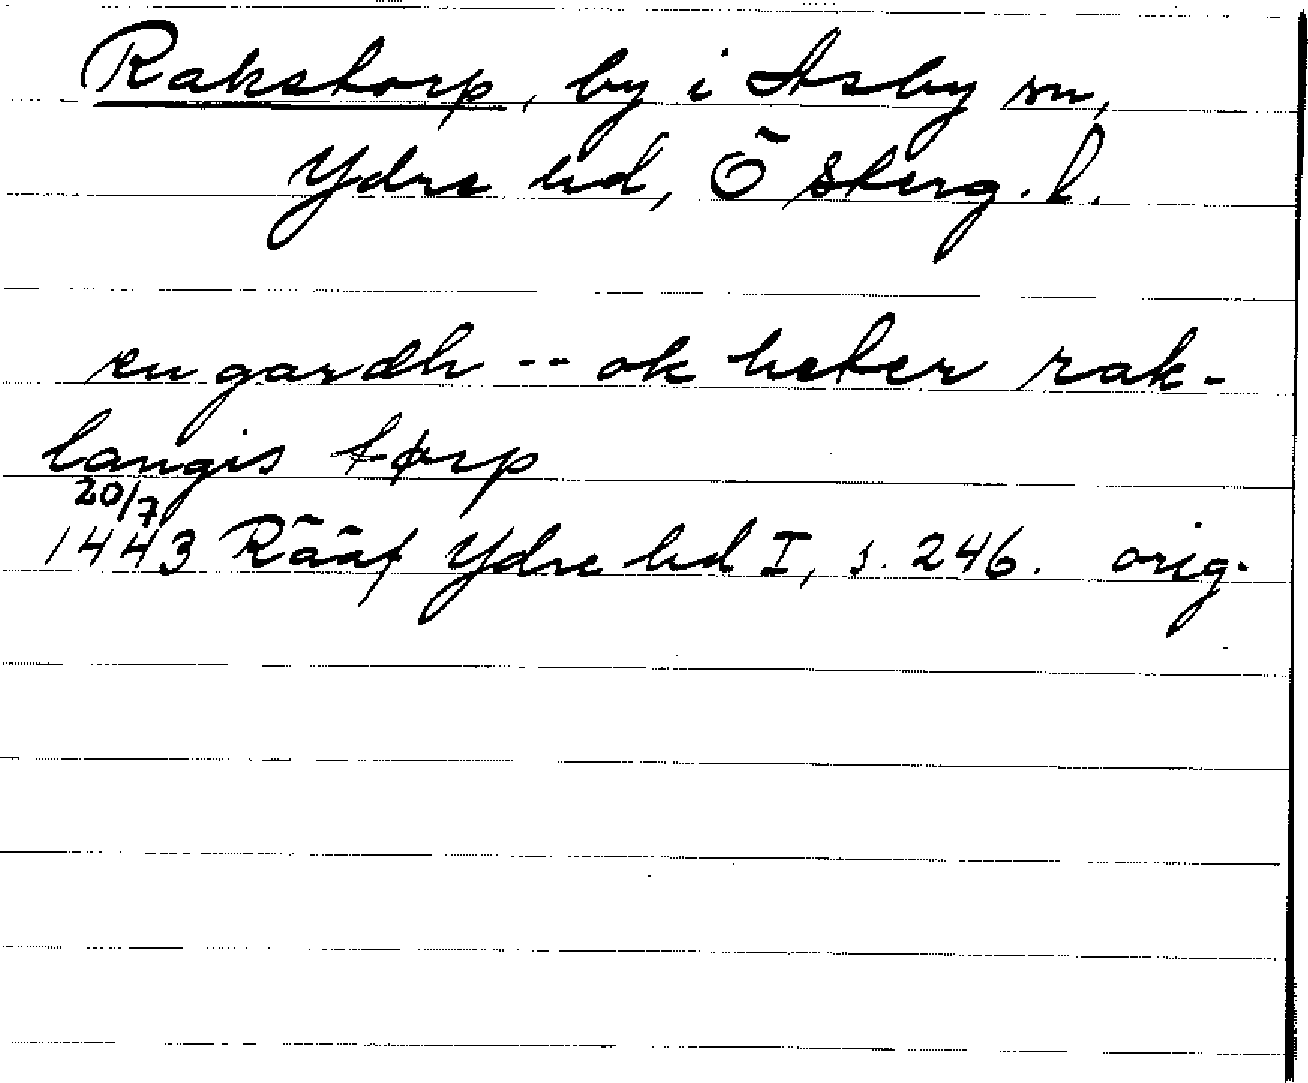 Rakstorp, by i Asby sn,
Ydre hd, Österg. l.
en gardh -- ok heter rak-
langis tørp
20/7
1443 Rääf Ydre hd I, s. 246. orig.